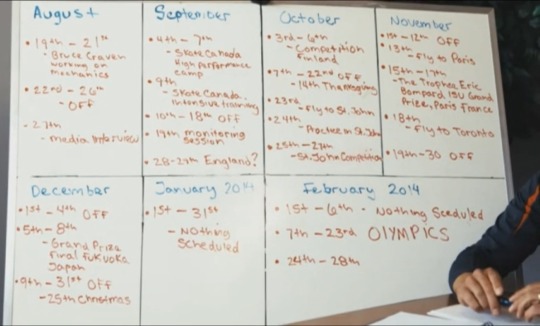 August
• 19th - 21st
- Bruce Craven
working on
mechanics
• 22nd - 26th
- OFF
• 27th
- media interview
September
• 4th - 7th
- Skate Canada
High performance
camp
• 9th
- Skate Canada
intensive training
• 10th - 18th OFF
• 19th monitoring
session
• 28-29th England?
October
3rd - 6th
- Competition
Finland
• 7th - 22nd OFF
- 14th Thanksgiving
• 23rd
- Fly to St. John
• 24th
- Practice in St. John
• 25th - 27th
- St. John Competition
November
• 1st - 12th OFF
• 13th - Fly to Paris
• 15th - 17th
- The Trophee Eric
Bompard ISU Grand
Prize, Paris France
• 18th
- Fly to Toronto
• 19th - 30 OFF
December
• 1st - 4th OFF
• 5th - 8th
- Grand Prize
Final Fukuoka
Japan
• 9th - 31st OFF
- 25th Christmas
January 2014
• 1st - 31st
- Nothing
Scheduled
February 2014
• 1st - 6th - Nothing Sceduled
• 7th - 23rd OlYMPICS
• 24th - 28th